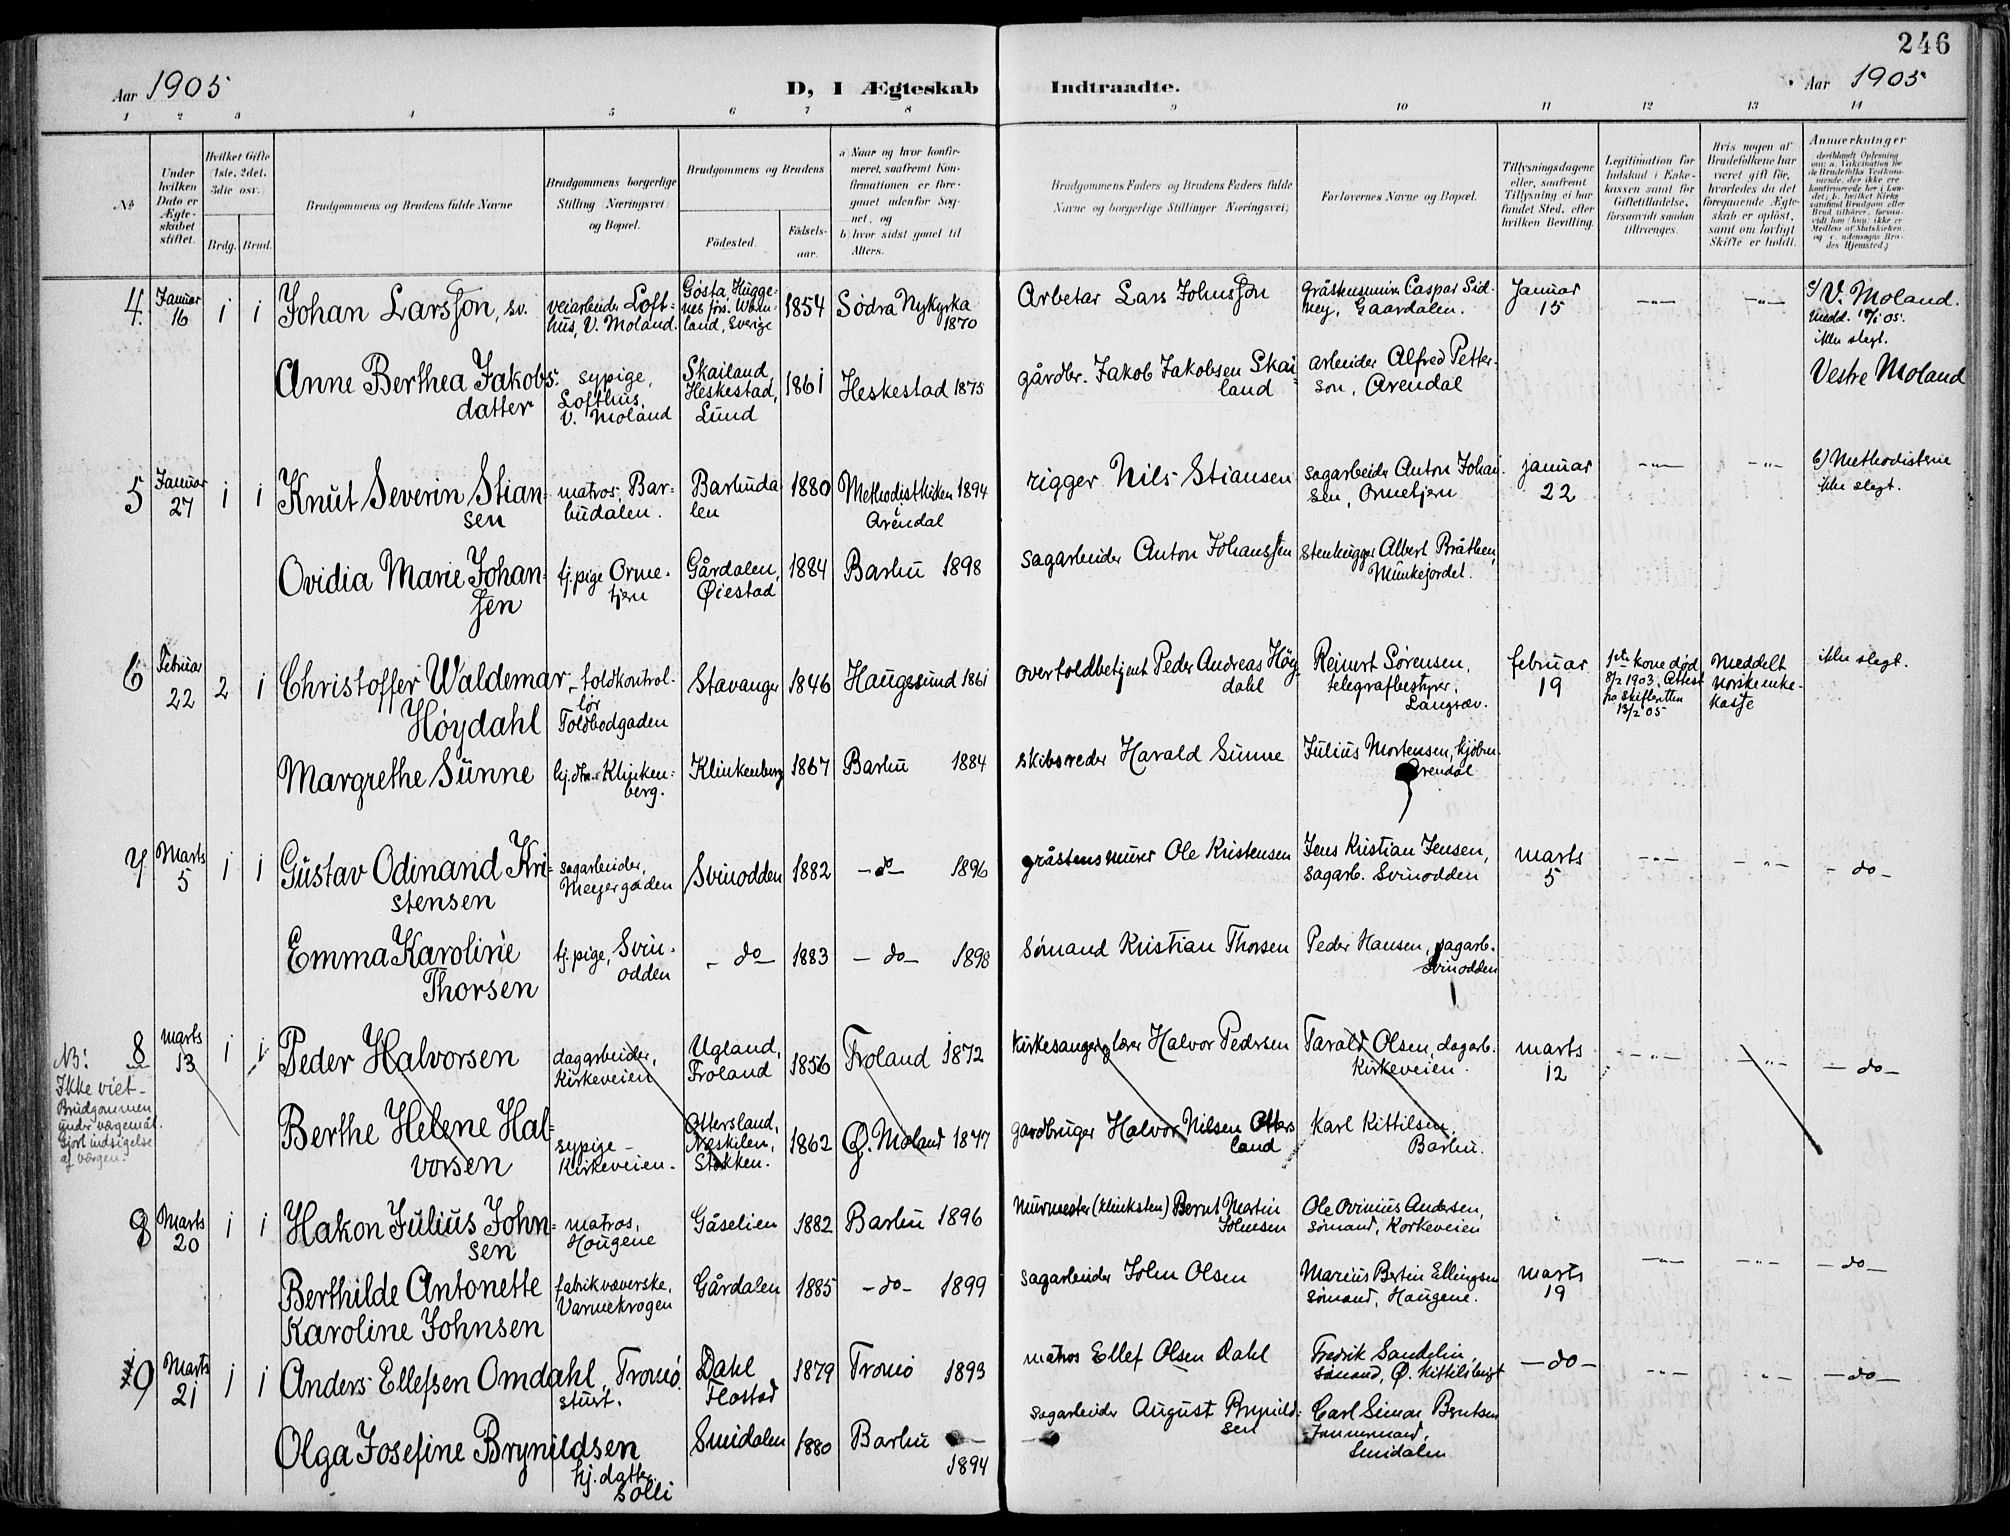 246
Aar 1905
D, I Ægteskab Indtraadte.
Aar 1905
1 2 3 4 5 6 7 8 9 10 11 12 13 14
№
Under hvilken Dato er Ægteskabet stiftet.
Hvilket Gifte (1ste, 2det, 3die osv.)
Brdg. Brud.
Brudgommens og Brudens fulde Navne
Brudgommens borgerlige Stilling (Næringsvei) og Bopæl.
Brudgommens og Brudens
Fødested.
Fødselsaar.
a) Naar og hvor konfirmeret, saafremt Konfirmationen er foregaaet udenfor Sognet, og
b) hvor sidst gaaet til Alters.
Brudgommens Faders og Brudens Faders fulde Navne og borgerlige Stillinger (Næringsvei)
Forlovernes Navne og Bopæl.
Tillysningsdagene eller, saafremt Tillysning ei har fundet Sted, efter hvilken Bevilling.
Legitimation for Indskud i Enkekassen samt for Giftetilladelse, forsaavidt saadan tiltrænges.
Hvis nogen af Brudefolkene har været gift før, hvorledes da det foregaaende Ægteskab er opløst, samt om lovligt Skifte er holdt.
Anmærkninger
4. Januar 16 1 1 Johan Larsson, sv. veiarbeider Lofthus, V. Moland. Gösta, Sverige 1854 Södra Nykyrka 1870
Arbetar Lars Johnsson
Caspar Sidney, Gaardalen.
Januar 15 -"- -"- V. Moland. ikke slegt.
Anne Berthea Jakobsdatter sypige, Lofthus, V. Moland Skailand, Heskestad, Lund 1861 Heskestad 1875
gårdbr. Jakob Jakobsen Skailand
arbeider Alfred Petterson, Arendal
Vestre Moland
5 Januar 27 1 1 Knut Severin Stiansen matros, Barbudalen. Barbudalen 1880 Methodistkirken i Arendal 1894
rigger Nils Stiansen
sagarbeider Anton Johansen, Ormetjern
januar 22 -"- -"- Methodisterne ikke slegt.
Ovidia Marie Johansen tj.pige Ormetjern Gårdalen, Øiestad 1884 Barbu 1898
sagarbeider Anton Johanssen
stenhugger Albert Bråthen, Munkejordet.
6 Februar 22 2 1 Christoffer Waldemar Höydahl toldkontrollör Toldbodgaden Stavanger 1846 Haugesund 1861
overtoldbetjent Peder Andreas Höydahl
Reinert Sørensen, telegrafbestyrer, Langsæv.
februar 19
1ste kone död 8/2 1903. Attest fra skifteretten 13/2 05
Meddelt norske enkekasse
ikke slegt.
Margrethe Sünne hj.dtr. Klinkenberg. Klinkenberg 1867 Barbu 1884
skibsreder Harald Sunne
Julius Mortensen, kjöbm. Arendal
7 Marts 5 1 1 Gustav Odinand Kristensen sagarbeider, Meyergaden Svinodden 1882 -do- 1896
gråstensmurer Ole Kristensen
Jens Kristian Jensen, sagarb. Svinodden
marts 5 -"- -"- -do-
Emma Karoline Thorsen tj.pige, Svinodden -do- 1883 -do- 1898
sømand Kristian Thorsen
Peder Hansen, sagarb. Svinodden
8 marts 13 1 1 Peder Halvorsen dagarbeider, Kirkeveien Ugland, Froland 1856 Froland 1872
kirkesanger, lærer Halvor Pedersen
Tarald Olsen, dagarb. Kirkeveien.
marts 12 -"- -"- -do-
NB: Ikke viet - Brudgommen under værgemål. Gjort indsigelse af værgen.
Berthe Helene Halvorsen sypige - Kirkeveien. Ottersland, Næskilen, Stokken. 1862 Ø. Moland 1877
gardbruger Halvor Nilsen Ottersland
Karl Kittilsen, Barbu.
9 Marts 20 1 1 Hakon Julius Johnsen matros, Hougene Gåselien 1882 Barbu 1896
Murmester (klinksten) Bernt Martin Johnsen
Ole Ovinius Andersen, sømand, Korkeveien
Berthilde Antonette Karoline Johnsen fabrikvæverske, Varmekrogen Gårdalen 1885 -do- 1899
sagarbeider John Olsen
Marius Bertin Ellingsen sømand, Haugene.
marts 19 -"- -"- -do-
10 Marts 21 1 1 Anders Ellefsen Omdahl, Tromö. stuert. Dahl Flostad 1879 Tromö 1893
matros Ellef Olsen Dahl
Fredrik Sandelin, sömand, Ø. Kittilsbugt
-do- -"- -"- -do-
Olga Josefine Brynildsen hj.datter Solli Smidalen 1880 Barbu 1894
sagarbeider August Brynildsen
Carl Simon Berntsen Tømmermand, Smidalen